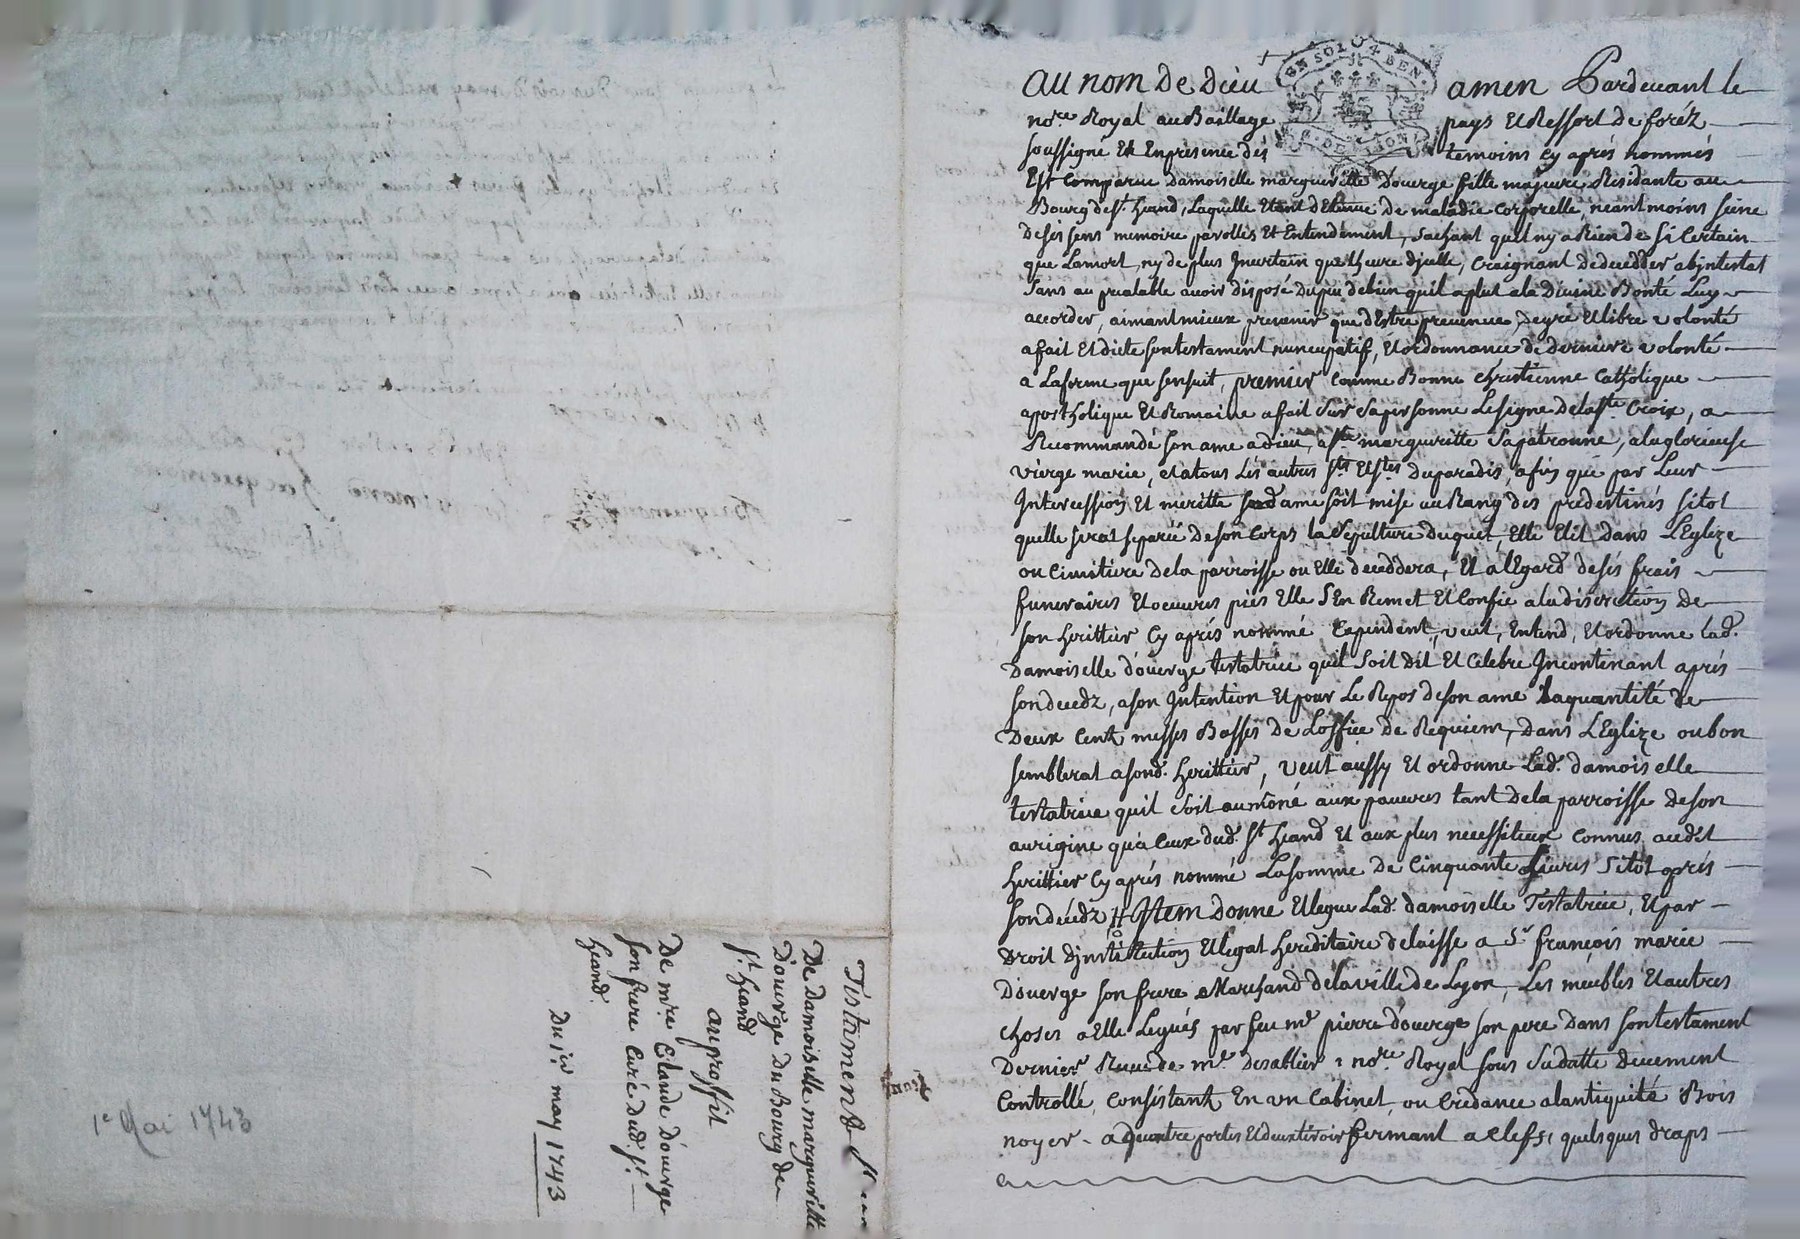 au nom de dieu amen Pardevant le
no.re Royal au Baillage pays Et Ressort de foréz
soussigné Et En presence des temoins cy aprés nommés
Est Comparue damoiselle margueritte D'ouerge fille majeure Residante au
Bourg de st. heand, Laquelle Etant dEtenue de maladie corporelle, neantmoins seine
de ses sens memoire parolles Et Entendement, sachant quil ny a Rien de si Certain
que Lamort, ny de plus Incertain que Lheure djcelle, Craignant de decedder abjntestat
sans au prealable avoir disposé du peu de bien quil a plut a la Divine Bonté Luy
accorder, aimant mieux prevenir que dEstre prevenue de gré Et libre volonté
a fait Et dicté son testament nuncupatif, Et ordonnance de derniere volonté
a Laforme que sensuit, premier comme Bonne chrestienne Catholique
apostholique Et Romaine a fait sur sa personne Le signe de la ste Croix, a
Recommandé son ame a dieu, a ste margueritte sa patronne, a la glorieuse
vierge marie, et a tous Les autres sts Et stes du paradis, afin que par Leur
Intercession Et meritte sond ame soit mise au Rang des predestinés sitot
quelle serat separée de son corps la sepulture duquel, Elle Elit dans LEglize
ou Cimitiere de la parroisse ou Elle deceddera, Et a lEgard de ses frais
funeraires Et oeuvres pies Elle s'En Remet Et Confie a la discretion de
son heritier Cy aprés nommé Cependent, veut, Entend, Et ordonne lad.
Damoiselle d'ouerge testatrice quil soit dit Et Celebré Incontinant aprés
son decedz, a son Intention Et pour Le Repos de son ame La quantité de
Deux Centz messes Basses de Loffice de Requiem, dans LEglize ou bon
semblerat a sond. heritier, veut aussy Et ordonne Lad. damoiselle
testatrice quil soit aumôné aux pauvres tant de la parroisse de son
aurigine qu'a Ceux dud. st heand Et aux plus necessiteux connus audit
herittier Cy aprés nommé La somme de Cinquante Livres sitot aprés
son decedz Item Donne Et legue Lad. damoiselle Testatrice, Et par
Droit djnstitution Et legat hereditaire delaisse a sr. françois marie
D'ouerge son frere Marchand de la ville de Lyon, Les meubles Et autres
choses a Elle Legués par feu mre pierre d'ouerge son pere dans son testament
Dernier Receu de me. desablier no.re Royal sous sa datte düement
Controllé, Consistantz En un Cabinet, ou Crédance a lantiquité Bois
noyer a Quatre portes Et deux tiroir fermant a clefs, quelques draps
Testament
De damoiselle marguerille
D'ouerge du Bourg de
st. heand
au proffit
De mre Claude D'ouerge
son frere Curé dud. st.
heand.
Du 1er may 1743
1er Mai 1743